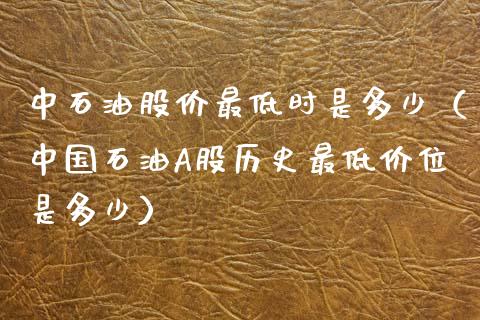 中石油股价最低时是多少（
中国石油A股历史最低价位
是多少）